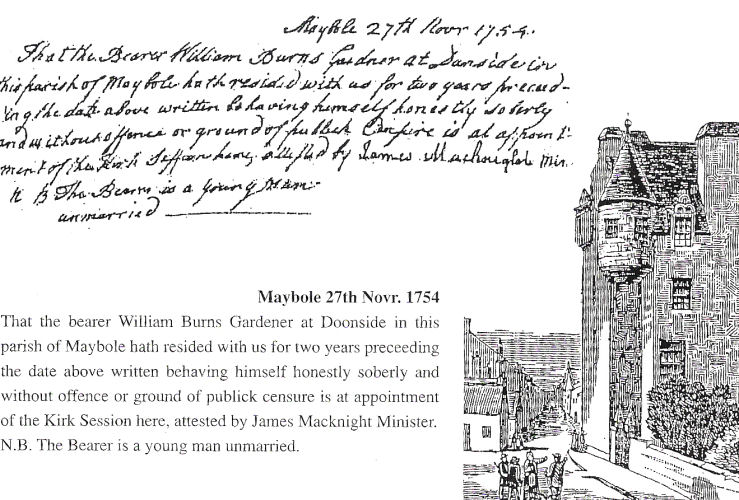 Maybole 27th Novr 1754.
That the Bearer William Burns Gardner at Dunside in
this parish of Maybole hath resided with us for two years preceed-
ing the date above written behaving himself honestly soberly
and without offence or ground of publick Censure is at appoint-
ment of the Kirk Session here, attested by James Macknight Min.
N B The Bearer is a young Man
unmarried
Maybole 27th Novr. 1754
That the bearer William Burns Gardener at Doonside in this
parish of Maybole hath resided with us for two years preceeding
the date above written behaving himself honestly soberly and
without offence or ground of publick censure is at appointment
of the Kirk Session here, attested by James Macknight Minister.
N.B. The Bearer is a young man unmarried.